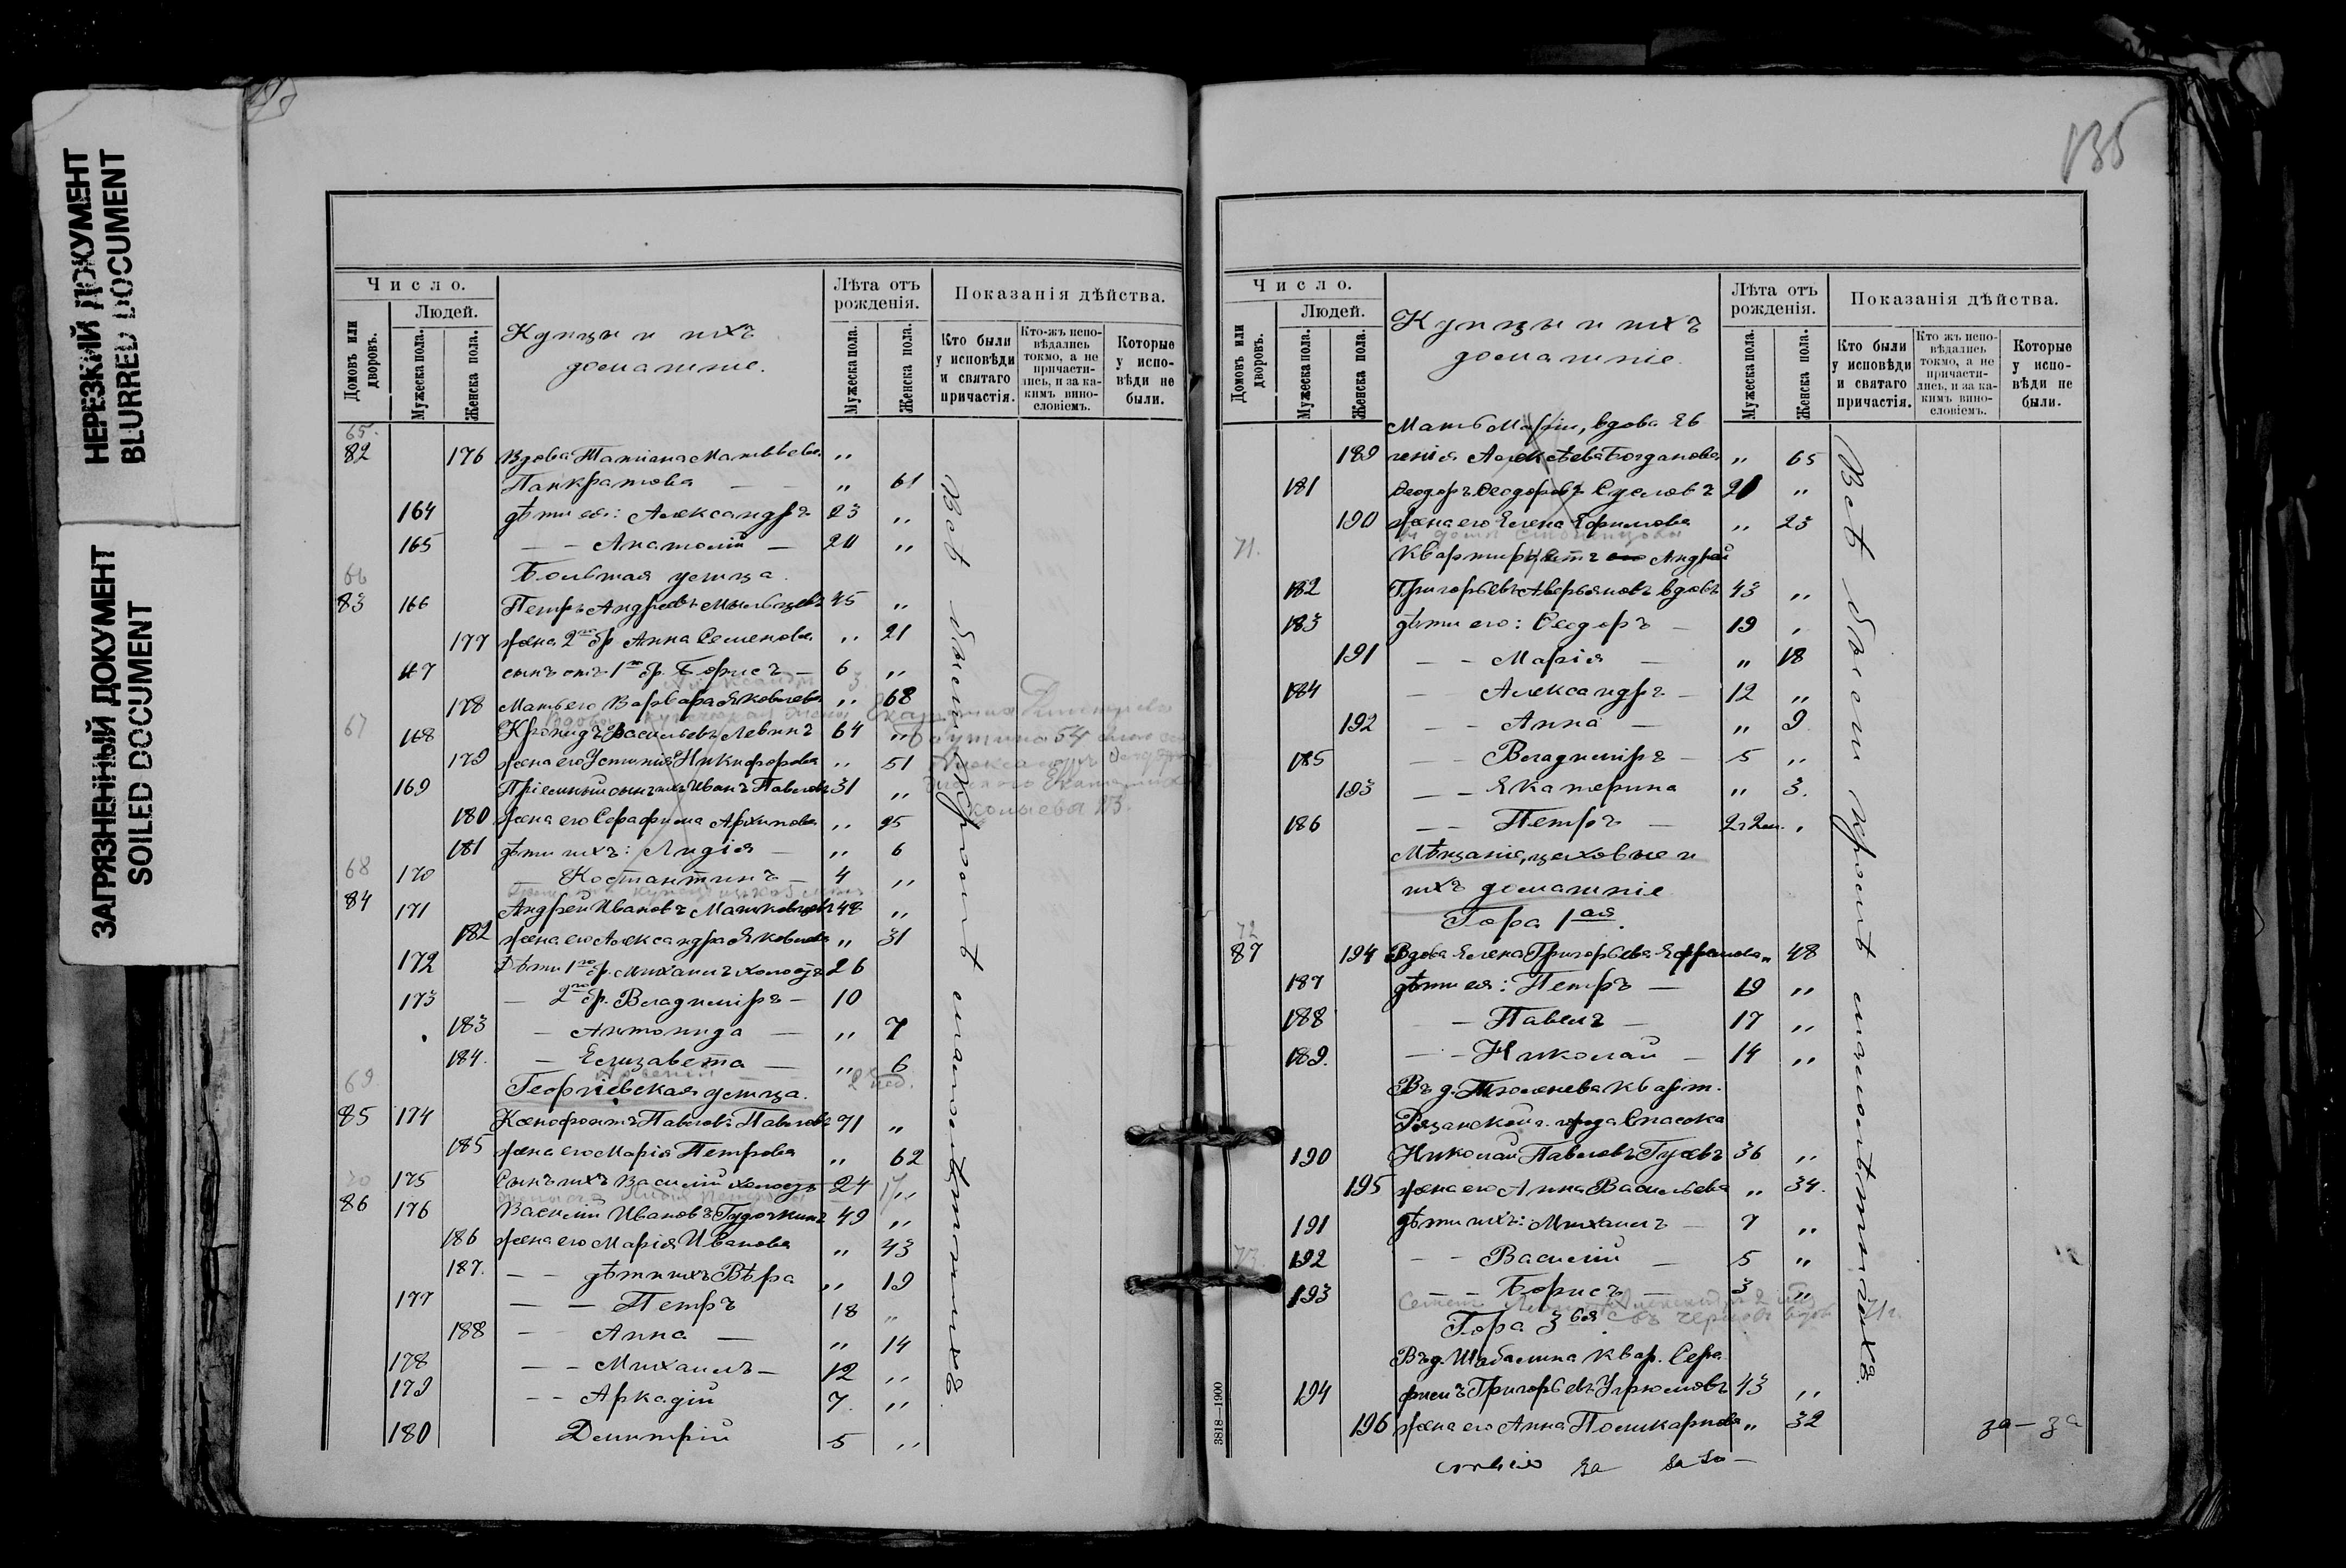 НЕРЕЗКИЙ ДОКУМЕНТ
BLURRED DOCUMENT
ЗАГРЯЗНЕННЫЙ ДОКУМЕНТ
SOILED DOCUMENT
Число.
Домовъ или дворовъ.
Людей.
Мужеска пола.
Женска пола.
Купцы и ихъ
домашніе.
Лѣта отъ рожденія.
Мужеска пола.
Женска пола.
Показанія дѣйства.
Кто были у исповѣди и святаго причастія.
Кто-жъ исповѣдались токмо, а не причастились, и за какимъ винословіемъ.
Которые у исповѣди не были.
65.
82 176 Вдова Татіана Матвѣева „
Панкратова — — „ 61
164 дѣти ея: Александръ 23 „
165 — — Анатолій — 20 „
66 Большая улица.
83 166 Петръ Андреевъ Мыльцевъ 45 „
177 жена 2го бр Анна Семенова „ 21
167 сынъ отъ 1го бр. Борисъ — 6 „
178 Мать его Варвара Яковлева „ 68
67
168 Кронидъ Васильевъ Левинъ 64 „
179 жена его Устинія Никифорова „ 51
169 Пріемный сынъ ихъ Иванъ Павловъ 31 „
180 жена его Серафима Архипова „ 25
181 дѣти ихъ: Лидія — „ 6
68 170 — Костантинъ — 4 „
84 171 Андрей Ивановъ Машковцевъ 48 „
182 жена его Александра Яковлева „ 31
172 Дѣти 1го бр. Михаилъ холостъ 26
173 — 2го бр. Владиміръ — 10
183 — Антонида — „ 7
184. — Елизавета — „ 6
69 Георгіевская улица.
85 174 Ксенофонтъ Павловъ Павловъ 71 „
185 жена его Марія Петрова „ 62
70 175 Сынъ ихъ Василій холостъ 24 „
86 176 Василій Ивановъ Гудочкинъ 49 „
186 жена его Марія Иванова „ 43
187. — — дѣти ихъ Вѣра „ 19
177 — — Петръ 18 „
188 — Анна — „ 14
178 — — Михаилъ — 12 „
179 — — Аркадій 7. „
180 Димитрій 5 „
Всѣ были кромѣ малолѣтнихъ.
135
Число.
Домовъ или дворовъ.
Людей.
Мужеска пола.
Женска пола.
Купцы и ихъ
домашніе.
Лѣта отъ рожденія.
Мужеска пола.
Женска пола.
Показанія дѣйства.
Кто были у исповѣди и святаго причастія.
Кто жъ исповѣдались токмо, а не причастились, и за какимъ винословіемъ.
Которые у исповѣди не были.
Мать Маріи, вдова Ев
189 генія Алексѣева Богданова „ 65
181 Ѳеодоръ Ѳеодоровъ Сусловъ 21 „
190 жена его Елена Ефимова „ 23
71. Квартирантъ Андрей
182 Григорьевъ Аверьяновъ вдовъ 43 „
183 дѣти его: Ѳеодоръ — 19 „
191 — — Марія — „ 18
184 — Александръ — 12 „
192 — — Анна — „ 9
185 — — Владиміръ — 5 „
193 — — Екатерина „ 3.
186 — — Петръ — 2г 2м. „
Мѣщане, цеховые и
ихъ домашніе
Гора 1ая.
72
87 194 Вдова Елена Григорьева Ефремова „ 48
187 дѣти ея: Петръ — 19 „
188 — Павелъ — 17 „
189. — — Николай — 14 „
Въ д. Тюленева кварт.
Рязанской г. города Спасска
190 Николай Павловъ Гусевъ 36 „
195 жена его Анна Васильева „ 34.
191 дѣти ихъ: Михаилъ — 7 „
73 192 — — Василій — 5 „
193 — — Борисъ — 3 „
Гора 3ья
Въ д. Шабалина квар. Сера
194 фимъ Григорьевъ Угрюмовъ 43 „
196 жена его Анна Поликарпова „ 32
за — за
Всѣ были кромѣ малолѣтнихъ.
3818—1900